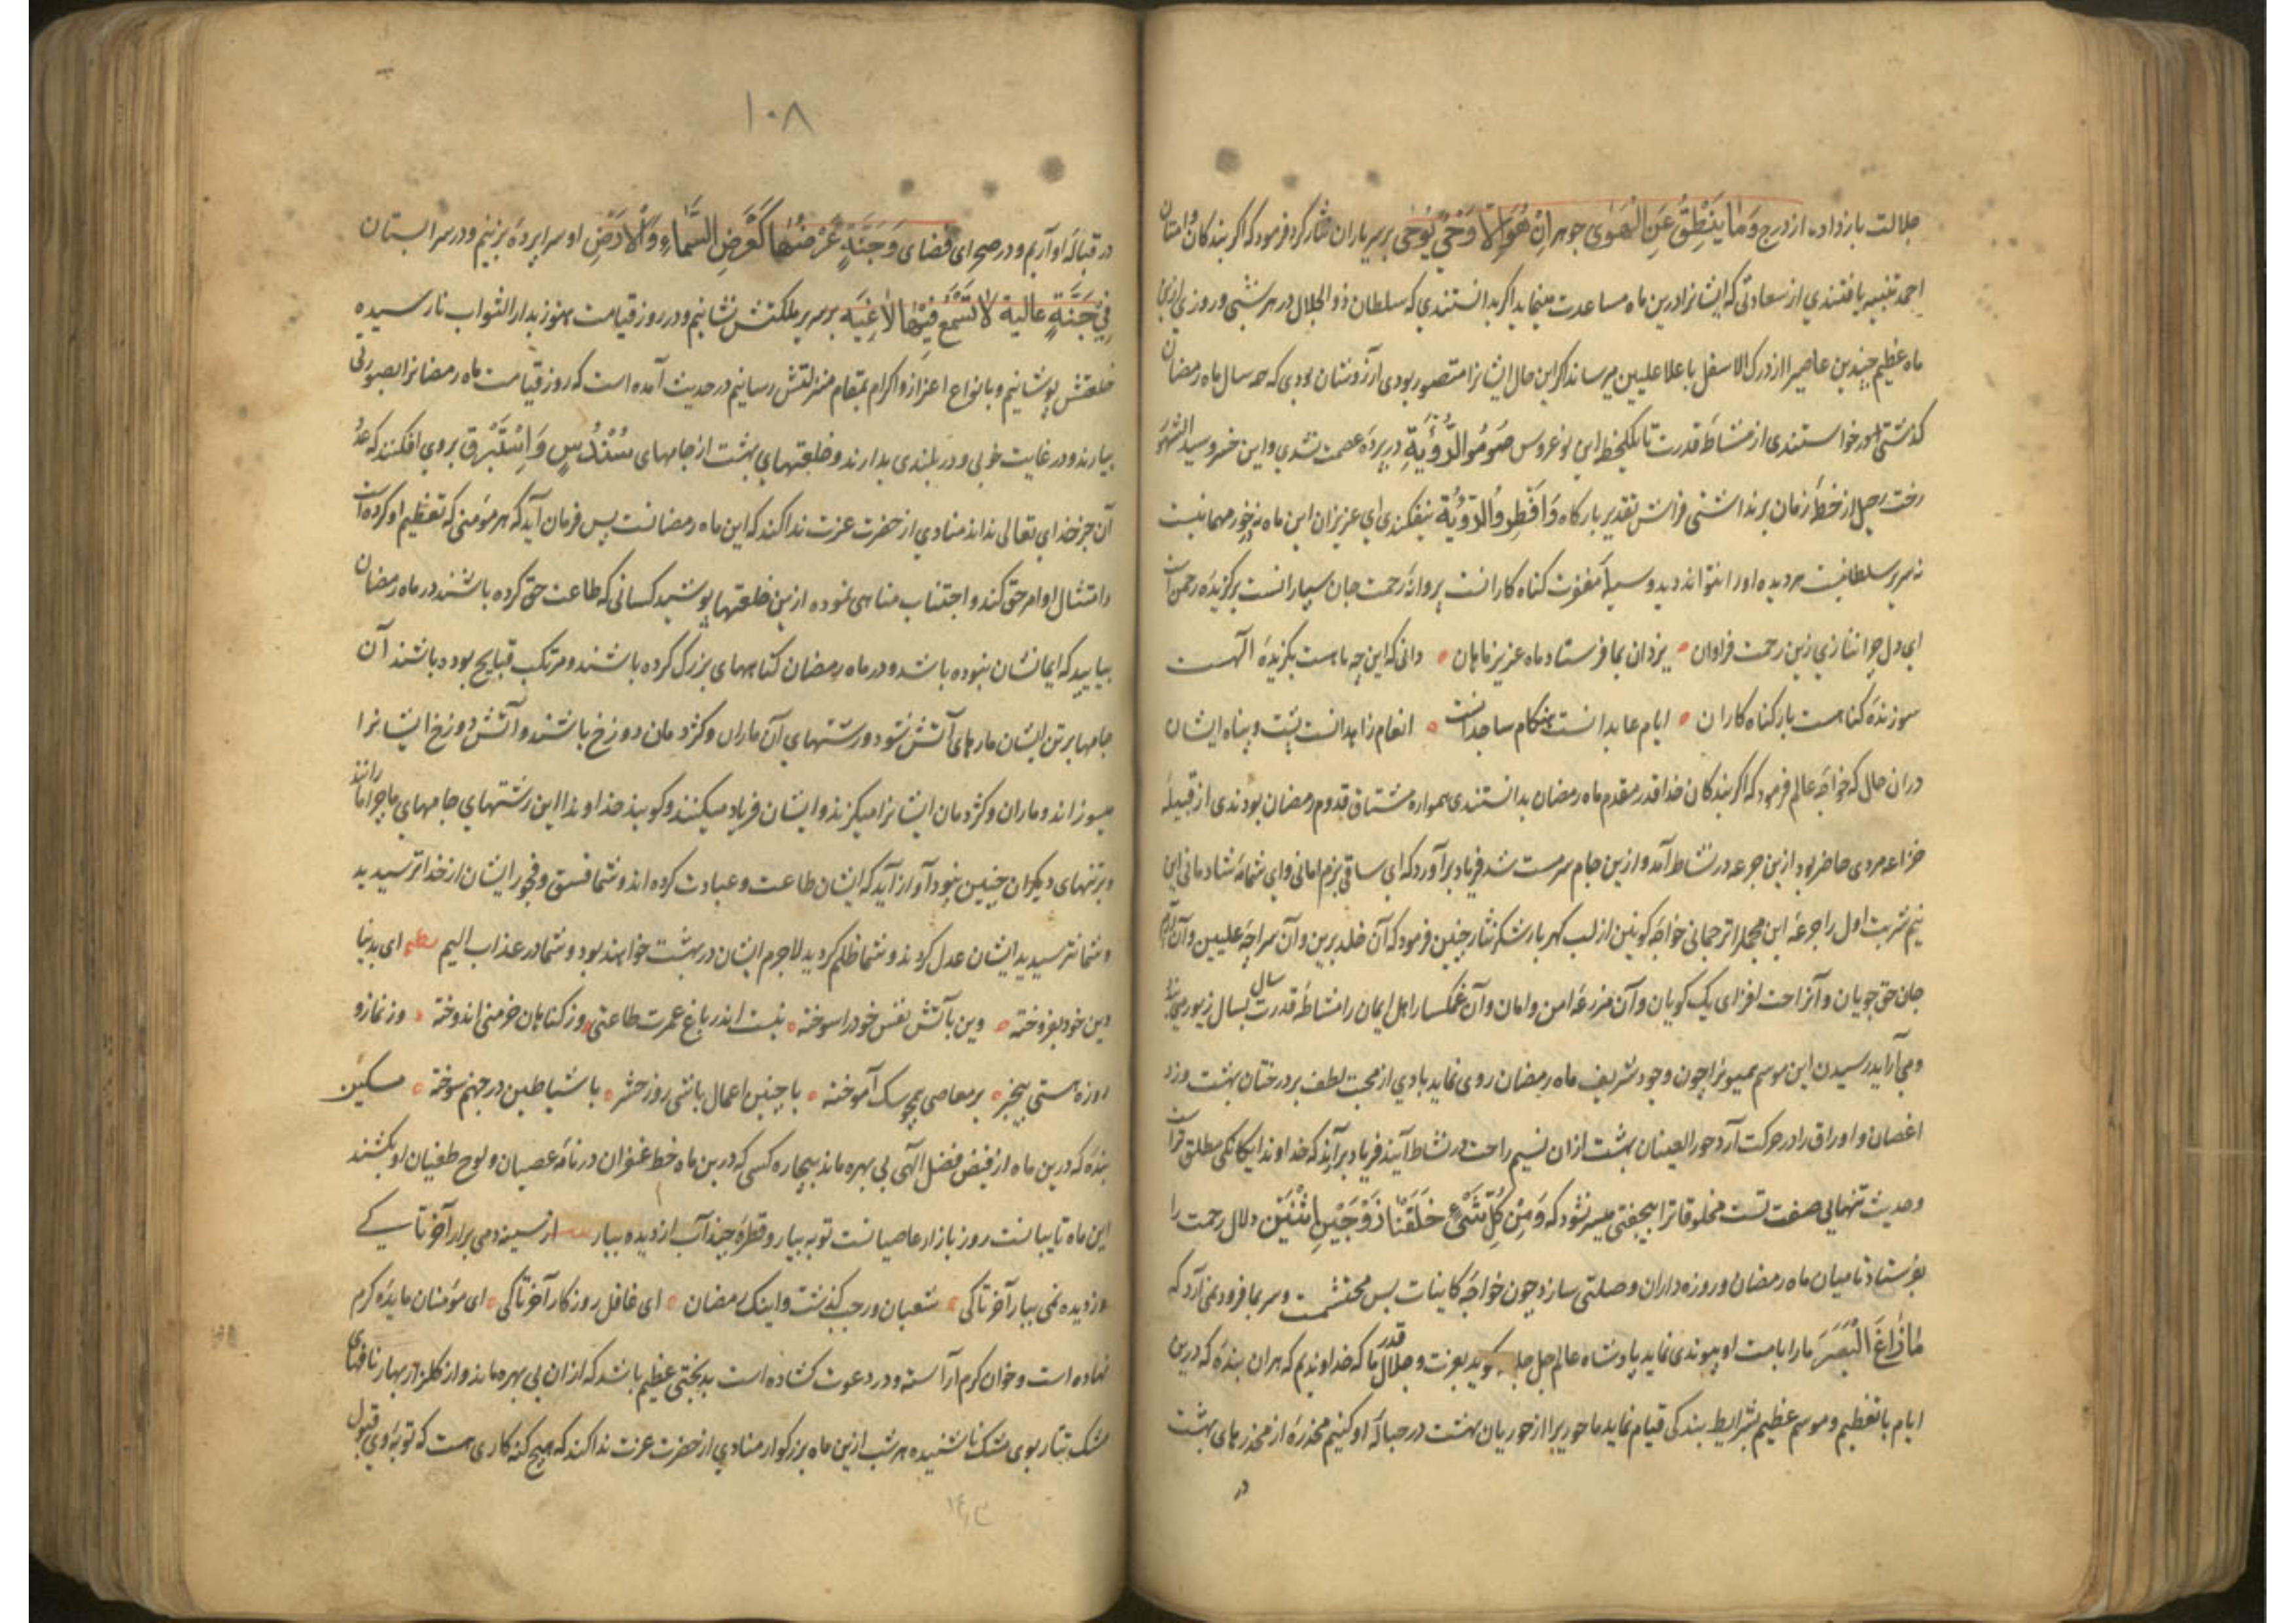 جلالت باز داد، از درج وَمَا يَنْطِقُ عَنِ الْهَوٰى جوهر اِنْ هُوَ اِلَّا وَحْىٌ يُوْحٰى بر سر یاران نثار کرد فرمود که اکر بندکان و امتان
احمد تنبیه یافتندی از سعادتی که ایشانرا درین ماه مساعدت مینماید اکر بدانستندی که سلطان ذو الجلال در هر شبی و روزی ازین
ماه عظیم چندین عاصیرا از درک الاسفل باعلا علیین میرساند اکر این حال ایشانرا متصور بودی آرزوشان بودی که همه سال ماه رمضان
کذشتی و در خواستندی از مشاطهٔ قدرت تا یکلحظه این نوعروس صُوْمُوا لِرُؤْيَتِهِ در پردهٔ عصمت نشدی و این خسرو سید الشهور
رخت رحیل از خطهٔ زمان برنداشتی فراش تقدیر بارکاه وَافْطِرُوا لِرُؤْيَتِهِ نیفکندی ای عزیزان این ماه نه در خور مهمانیست
نه سریر سلطانیست هر دیده اورا نتواند دید وسیلهٔ مغفرت کناه کارانست پروانهٔ رحمت جان سپارانست برکزیدهٔ رحمن است
ای دل چرا ننازی زین رحمت فراوان ۰ یزدان بما فرستاد ماه عزیز ماهان ۰ دانی که این چه ماهست بکزیدهٔ الهست
سوزندهٔ کناهست بار کناه کاران ۰ ایام عابدانست هنکام ساجدانست ۰ انعام زاهدانست پشت و پناه ایشان
دران حال که خواجهٔ عالم فرمود که اکر بندکان خدا قدر مقدم ماه رمضان بدانستندی همواره مشتاق قدوم رمضان بودندی از قبیلهٔ
خزاعه مردی حاضر بود ازین جرعه در نشاط آمد و ازین جام سرمست شد فریاد برآورد که ای ساقی بزم امانی و ای شمامهٔ شادمانی این
نیم شربت اول را جرعهٔ این مجمل را ترجمانی خواجهٔ کونین از لب کهربار شکر نثار چنین فرمود که آن خلد برین و آن سراچهٔ علیین و آن آرام
جان حق جویان و آنراحت افزای یک کویان و آن مزرعهٔ امن و امان و آن غمکسار اهل ایمان را مشاطهٔ قدرت سال بسال زیور می
و می آراید رسیدن این موسم میمونرا چون وجود شریف ماه رمضان روی نماید بادی از محبت لطف بر درختان بهشت وزد
اغصان و اوراق را در حرکت آرد حور العینان بهشت ازان نسیم راحت در نشاط آیند فریاد برآرند که خداوندا یکانکی مطلق تراست
وحدیث تنهایی صفت تست مخلوقاترا بیجفتی میسر نشود که وَمِنْ كُلِّ شَىْءٍ خَلَقْنَا زَوْجَيْنِ اثْنَيْنِ دلال رحمت را
بفرستاد تا میان ماه رمضان و روزه داران وصلتی سازد چون خواجهٔ کاینات بس محتشمست و سر بما فرود نمی آرد که
مَا زَاغَ الْبَصَرَ مارا بامت او پیوندی نماید پادشاه عالم جل جلاله کوید بعزت و جلال قدر ما که خداوندیم که هران بندهٔ که درین
ایام با تعظیم و موسم عظیم بشرایط بندکی قیام نماید ما حوریرا از حوریان بهشت در حبالهٔ او کنیم مخدرهٔ از مخدرهای بهشت
در
۱۰۸
در قبالهٔ او آریم و در صحرای فضای وَجَنَّةٍ عَرْضُهَا كَعَرْضِ السَّمَاءِ وَالْاَرْضِ او سراپرده بزنیم و در سرابستان
فِىْ جَنَّةٍ عالية لَا تَسْمَعُ فِيْهَا لَاغِيَه بر سریر ملکتش نشانیم و در روز قیامت هنوز بدار الثواب نارسیده
خلعتش پوشانیم و بانواع اعزاز و اکرام بمقام منزلتش رسانیم در حدیث آمده است که روز قیامت ماه رمضانرا بصورتی
بیارند در غایت خوبی و در بلندی بدارند و خلعتهای بهشت از جامهای سُنْدُسٍ وَاِسْتَبْرَق بروی افکنند که عدد
آن جز خدای تعالی نداند منادی از حضرت عزت ندا کند که این ماه رمضانست پس فرمان آید که هر مؤمنی که تعظیم او کرده است
وامتثال اوامر حق کند و اجتناب مناهی نموده ازین خلعتها پوشید کسانی که طاعت حق کرده باشند در ماه رمضان
بیایید که ایمانشان نبوده باشد و در ماه رمضان کناههای بزرک کرده باشند و مرتکب قبایح بوده باشند آن
جامها بر تن ایشان مارهای آتش شود و رشتهای آن ماران و کژدمان دوزخ باشند و آتش دوزخ ایشانرا
میسوزاند و ماران و کژدمان ایشانرا میکزند و ایشان فریاد میکنند و کویند خداوندا این رشتهای جامهای ما چرا مارانند
و بر تنهای دیکران چنین نبود آواز آید که ایشان طاعت و عبادت کرده اند و شما فسق و فجور ایشان از خدا ترسیدید
و شما نترسیدید ایشان عدل کردند و شما ظلم کردید لاجرم ایشان در بهشت خواهند بود و شما در عذاب الیم نظم ای بدنیا
دین خود بفروخته ۰ وین بآتش نفس خود را سوخته ۰ نیست اندر باغ عمرت طاعتی ۰ وز کناهان خرمنی اندوخته ۰ وز نماز و
روزه هستی بیخبر ۰ بر معاصی همچو سک آموخته ۰ با چنین اعمال باشی روز حشر ۰ با شیاطین در جهنم سوخته ۰ مسکین
بندهٔ که درین ماه از فیض فضل الهی بی بهره ماند بیچاره کسی که درین ماه خط غفران در نامهٔ عصیان و لوح طغیان او نکشند
این ماه تایبانست روز بازار عاصیانست توبه بیار و قطرهٔ چند آب از دیده ببار از سینه دمی برار آخر تا کی
وز دیده نمی ببار آخر تا کی ۰ شعبان و رجب کذشت و اینک رمضان ۰ ای غافل روزکار آخر تا کی ۰ ای مؤمنان مایدهٔ کرم
نهاده است و خوان کرم آراسته و در دعوت کشاده است بدبختی عظیم باشد که ازان بی بهره ماند و از کلزار بهار نافهای
مشک تتار بوی مشک ناشنیده هر شب ازین ماه بزرکوار منادی از حضرت عزت ندا کند که هیچ کنه کاری هست که توبهٔ وی قبول